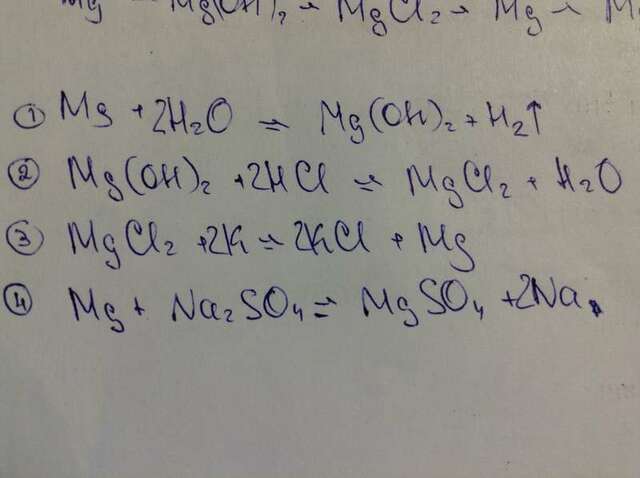 Mg → Mg(OH)₂ → MgCl₂ → Mg →
① Mg + 2H₂O = Mg(OH)₂ + H₂↑
② Mg(OH)₂ + 2HCl = MgCl₂ + H₂O
③ MgCl₂ + 2K = 2KCl + Mg
④ Mg + Na₂SO₄ = MgSO₄ + 2Na